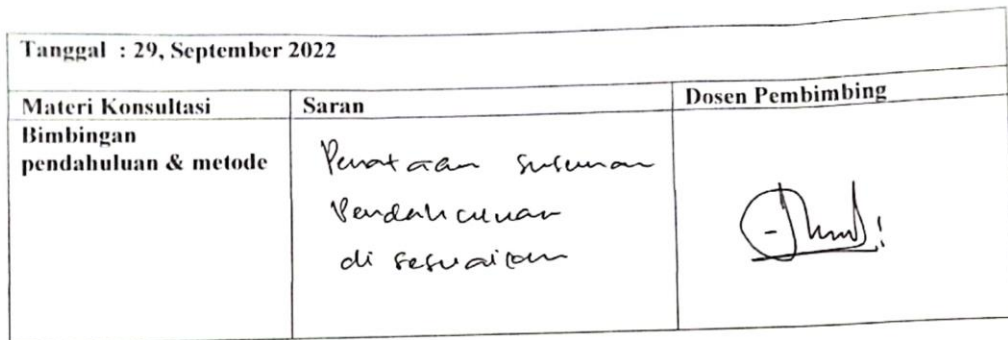 Tanggal : 29, September 2022
Materi Konsultasi Saran Dosen Pembimbing
Bimbingan
pendahuluan & metode
Penataan susunan
Pendahuluan
di sesuaikan